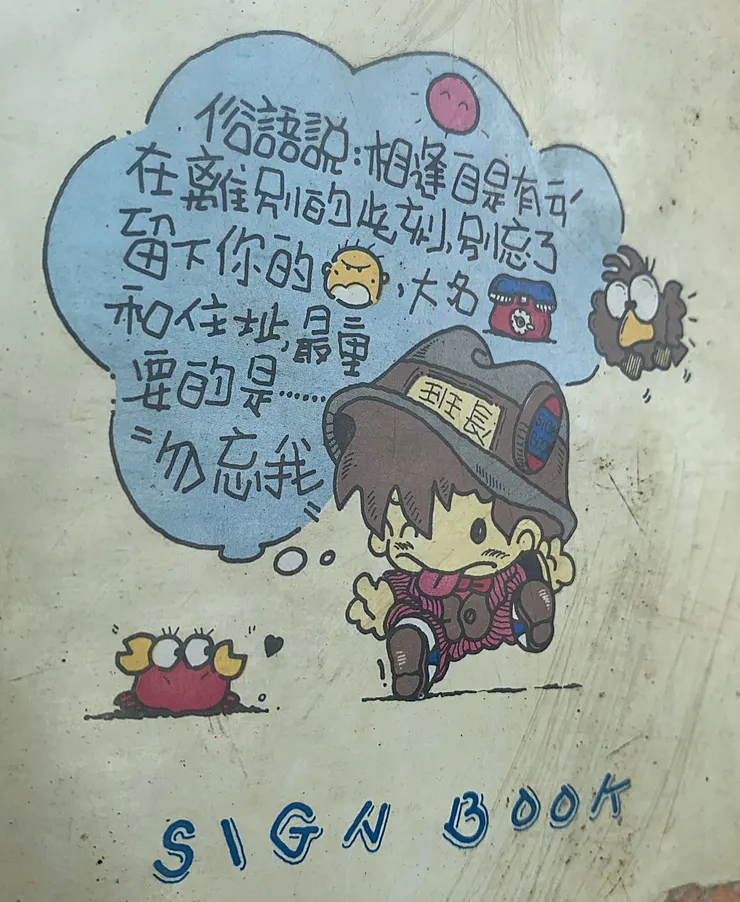 俗語說:相逢自是有
在離別的此刻,別忘了
留下你的,大名
和住址,最重
要的是……
"勿忘我"
班長
SIGN
BOOK
SIGN BOOK